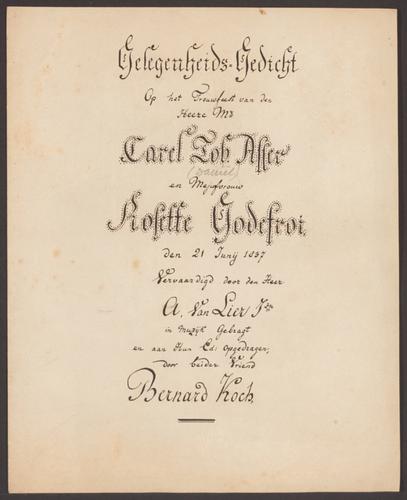 Gelegenheids-Gedicht
Op het Trouwfeest van den
Heere Mr
Carel Tob. Asser
(Daniël)
en Mejufvrouw
Rosette Godefroi.
den 21 Junij 1837
Vervaardigd door den Heer
A. Van Lier Jzn
in Muzijk Gebragt
en aan Hun Ed: opgedragen,
door beider Vriend
Bernard Koch.